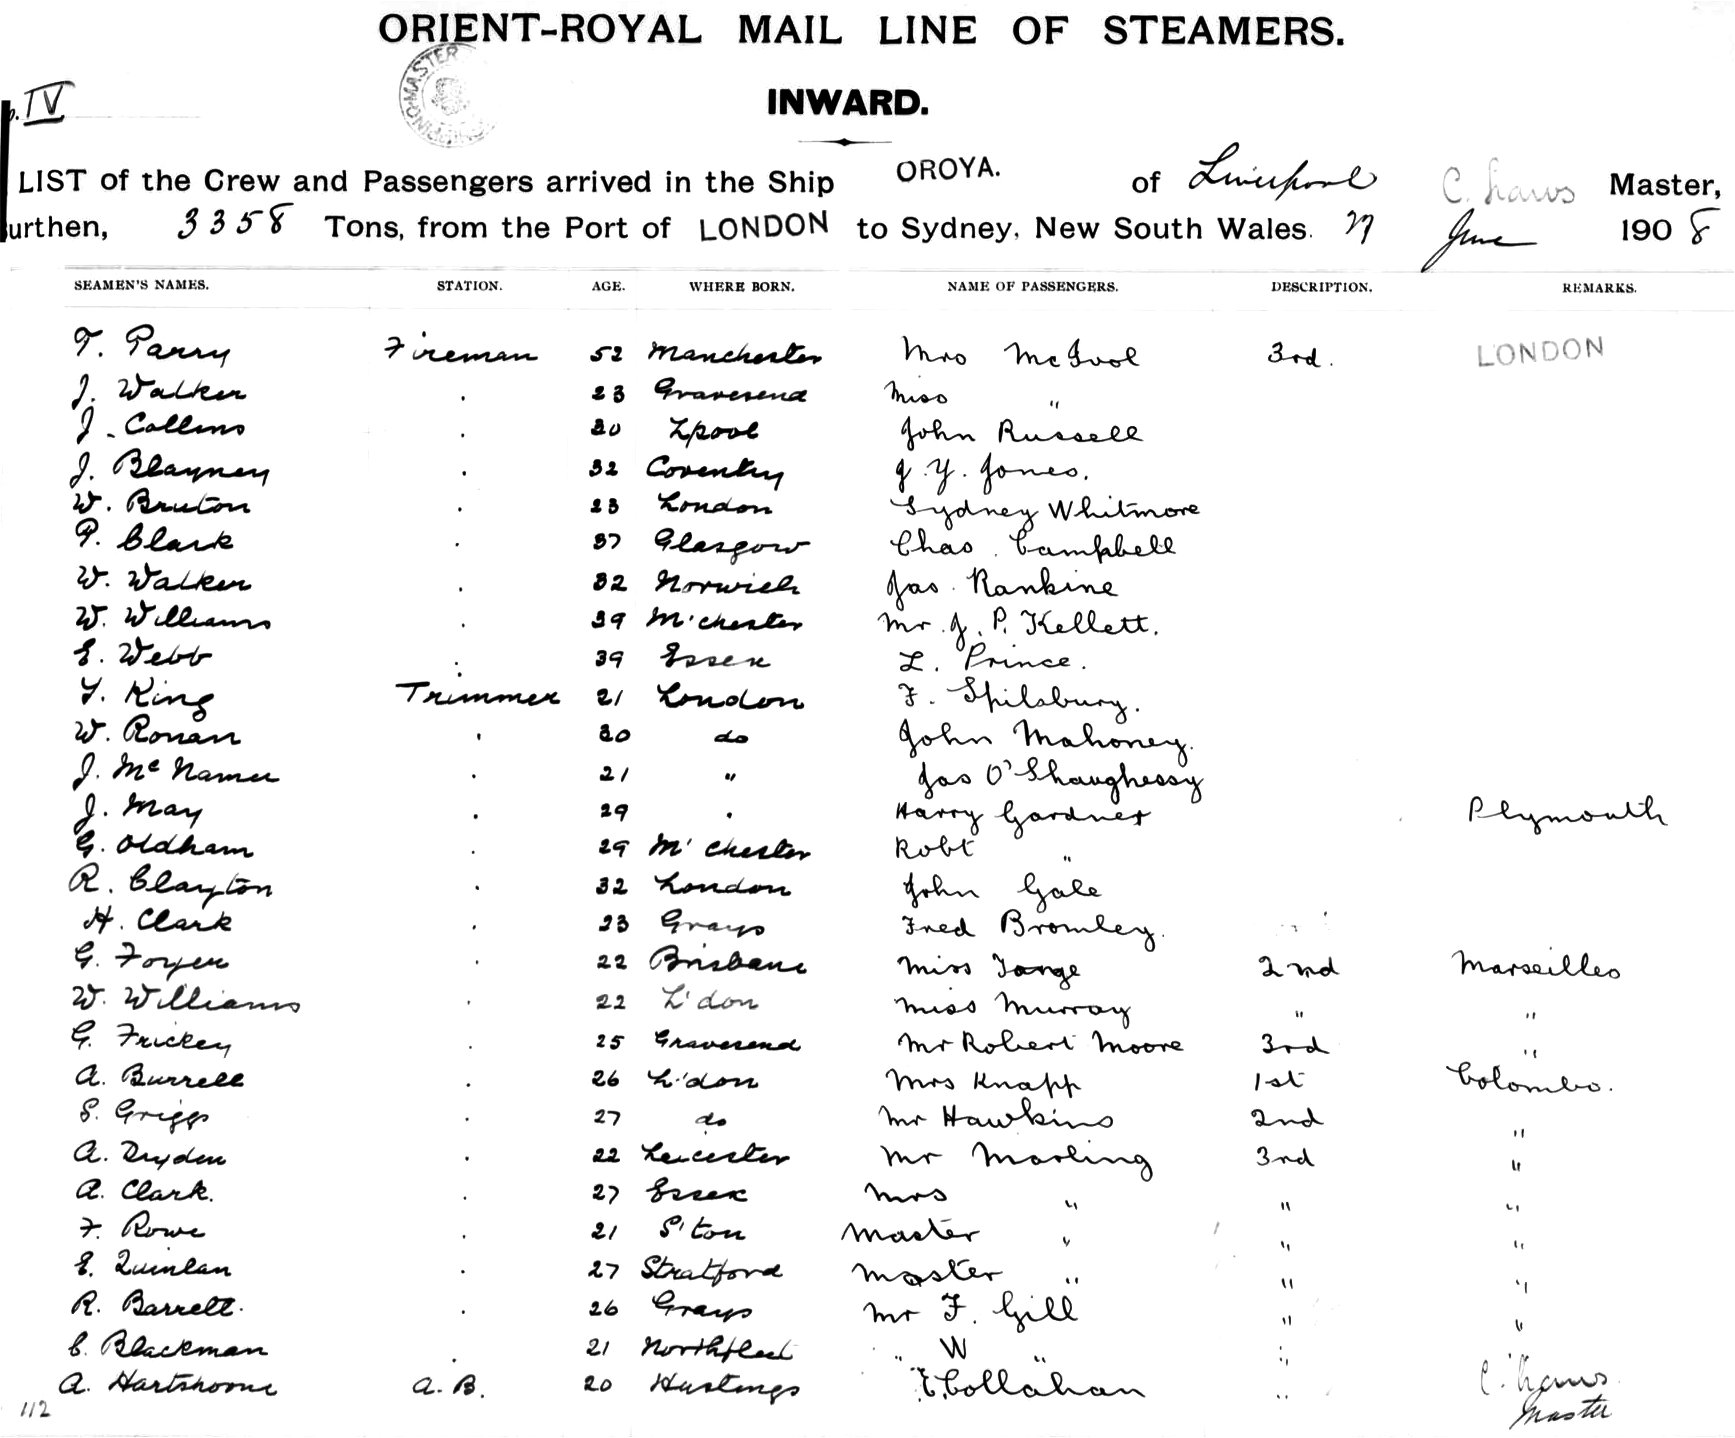 ORIENT-ROYAL MAIL LINE OF STEAMERS.
IV
INWARD.
LIST of the Crew and Passengers arrived in the Ship OROYA. of Liverpool C. Haws Master,
urthen, 3358 Tons, from the Port of LONDON to Sydney, New South Wales. 27 June 1908
SEAMEN'S NAMES. STATION. AGE. WHERE BORN. NAME OF PASSENGERS. DESCRIPTION. REMARKS.
T. Parry Fireman 52 Manchester Mrs McIvol 3rd. LONDON
J. Walker . 23 Gravesend Miss "
J. Collins . 30 Lpool John Russell
J. Blayney . 32 Coventry J. Y. Jones.
W. Bruton . 23 London Sydney Whitmore
P. Clark . 37 Glasgow Chas. Campbell
W. Walker . 32 Norwich Jas. Rankine
W. Williams . 39 M'chester Mr. J. P. Kellett.
E. Webb . 39 Essex L. Prince.
T. King Trimmer 21 London F. Spilsbury.
W. Ronan . 30 do John Mahoney.
J. McNamee . 21 " Jas O'Shaughessy
J. May . 29 . Harry Gardner Plymouth
G. Oldham . 29 M'chester Robt "
R. Clayton . 32 London John Gale
H. Clark . 23 Grays Fred Bromley.
G. Foyer . 22 Brisbane Miss Tange 2nd Marseilles
W. Williams . 22 L'don Miss Murray " "
G. Frickey . 25 Gravesend Mr Robert Moore 3rd "
A. Burrell . 26 L'don Mrs Knapp 1st Colombo.
S. Griggs . 27 do Mr Hawkins 2nd "
A. Dryden . 22 Leicester Mr Marling 3rd "
A. Clark. . 27 Essex Mrs " " "
F. Rowe . 21 S'ton Master " " "
E. Quinlan . 27 Stratford Master " " "
R. Barrett. . 26 Grays Mr F. Gill " "
C. Blackman . 21 Northfleet " W " "
A. Hartshorne A.B. 20 Hastings " E. Collahan " C. Haws
112 Master